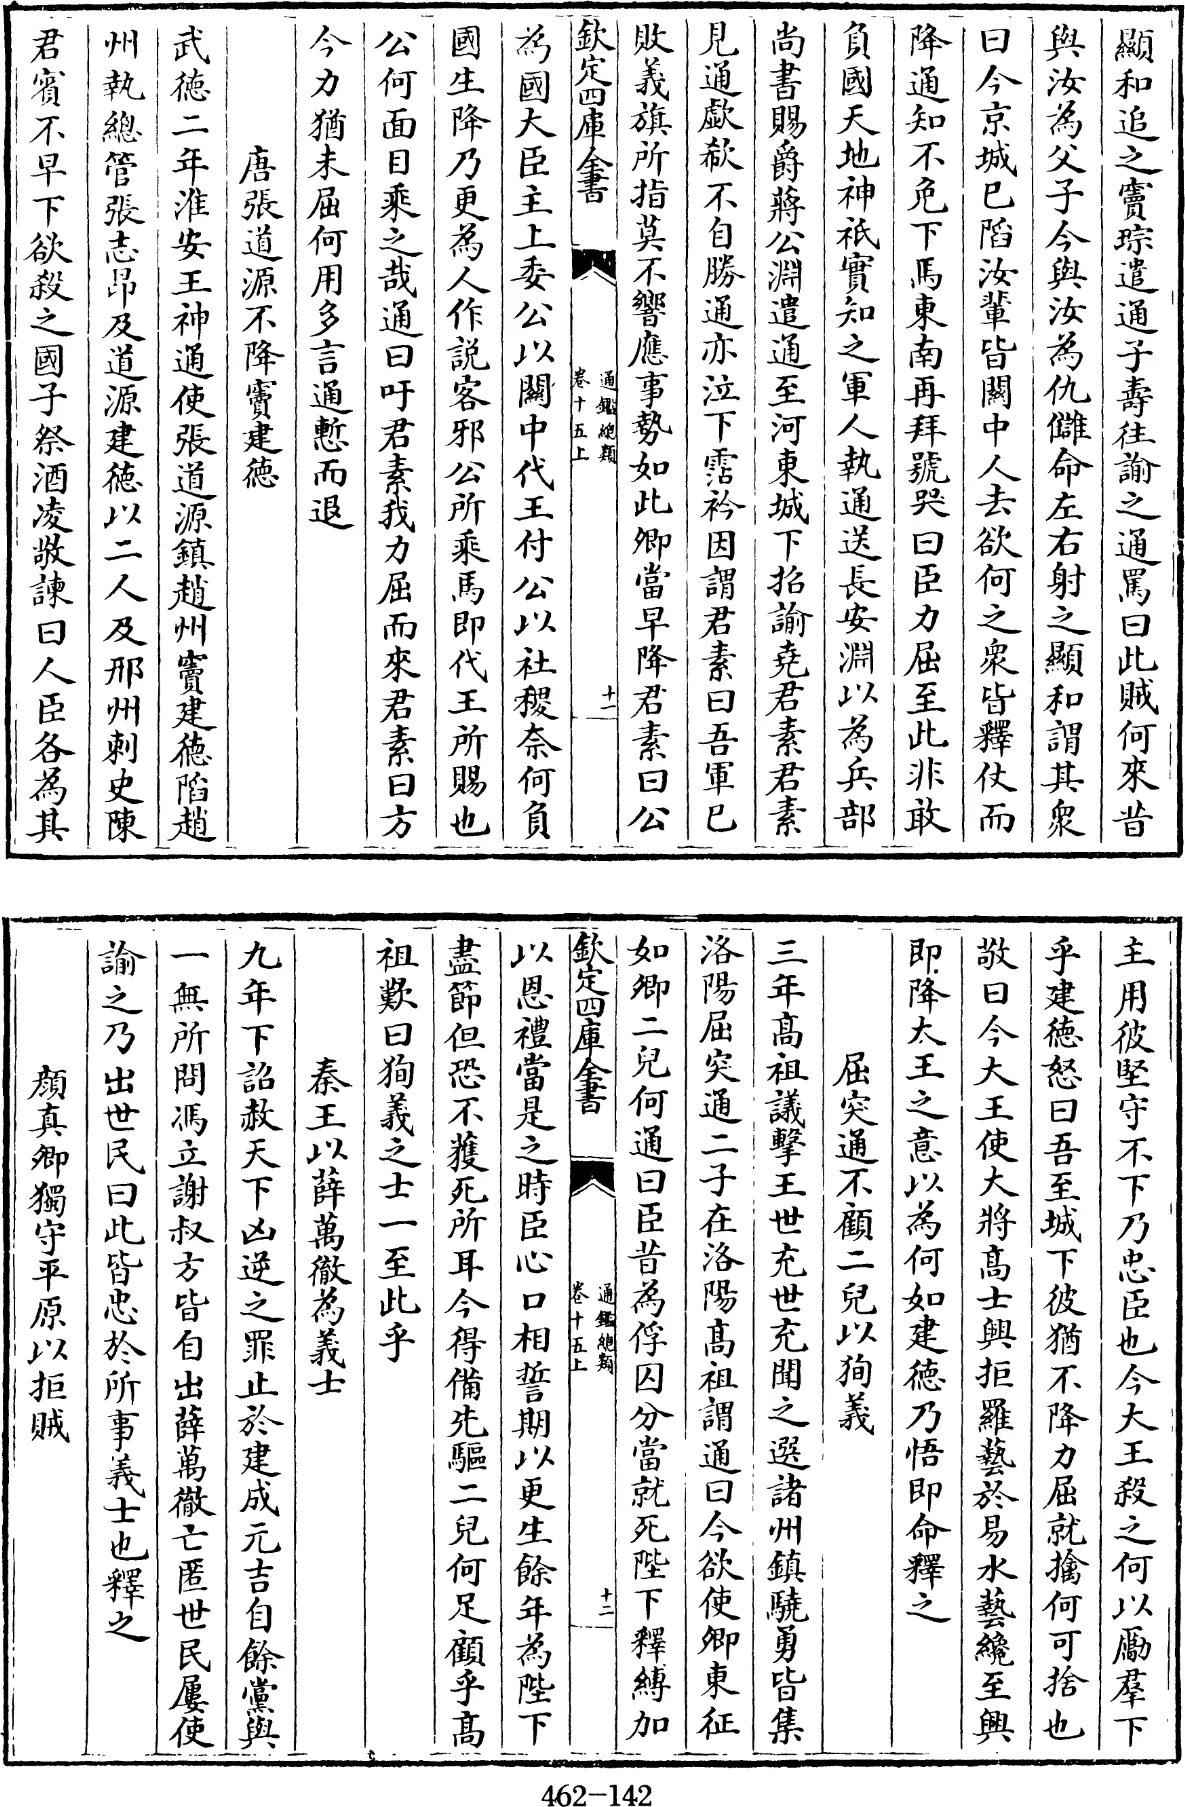 顯和追之竇琮遣通子壽往諭之通罵曰此賊何來昔
與汝為父子今與汝為仇讎命左右射之顯和謂其衆
曰今京城已陷汝輩皆關中人去欲何之衆皆釋仗而
降通知不免下馬東南再拜號哭曰臣力屈至此非敢
負國天地神祇實知之軍人執通送長安淵以為兵部
尚書賜爵蔣公淵遣通至河東城下招諭堯君素君素
見通歔欷不自勝通亦泣下霑衿因謂君素曰吾軍已
敗義旗所指莫不響應事勢如此卿當早降君素曰公
欽定四庫全書
通鑑總類
卷十五上
十一
為國大臣主上委公以關中代王付公以社稷奈何負
國生降乃更為人作說客邪公所乘馬即代王所賜也
公何面目乘之哉通曰吁君素我力屈而來君素曰方
今力猶未屈何用多言通慙而退
唐張道源不降竇建德
武德二年淮安王神通使張道源鎮趙州竇建德陷趙
州執總管張志昂及道源建德以二人及邢州刺史陳
君賓不早下欲殺之國子祭酒凌敬諫曰人臣各為其
主用彼堅守不下乃忠臣也今大王殺之何以勵羣下
乎建德怒曰吾至城下彼猶不降力屈就擒何可捨也
敬曰今大王使大將高士興拒羅藝於易水藝纔至興
即降大王之意以為何如建德乃悟即命釋之
屈突通不顧二兒以狥義
三年高祖議擊王世充世充聞之選諸州鎮驍勇皆集
洛陽屈突通二子在洛陽高祖謂通曰今欲使卿東征
如卿二兒何通曰臣昔為俘囚分當就死陛下釋縛加
欽定四庫全書
通鑑總類
卷十五上
十二
以恩禮當是之時臣心口相誓期以更生餘年為陛下
盡節但恐不獲死所耳今得備先驅二兒何足顧乎高
祖歎曰狥義之士一至此乎
秦王以薛萬徹為義士
九年下詔赦天下凶逆之罪止於建成元吉自餘黨與
一無所問馮立謝叔方皆自出薛萬徹亡匿世民屢使
諭之乃出世民曰此皆忠於所事義士也釋之
顏真卿獨守平原以拒賊
462-142